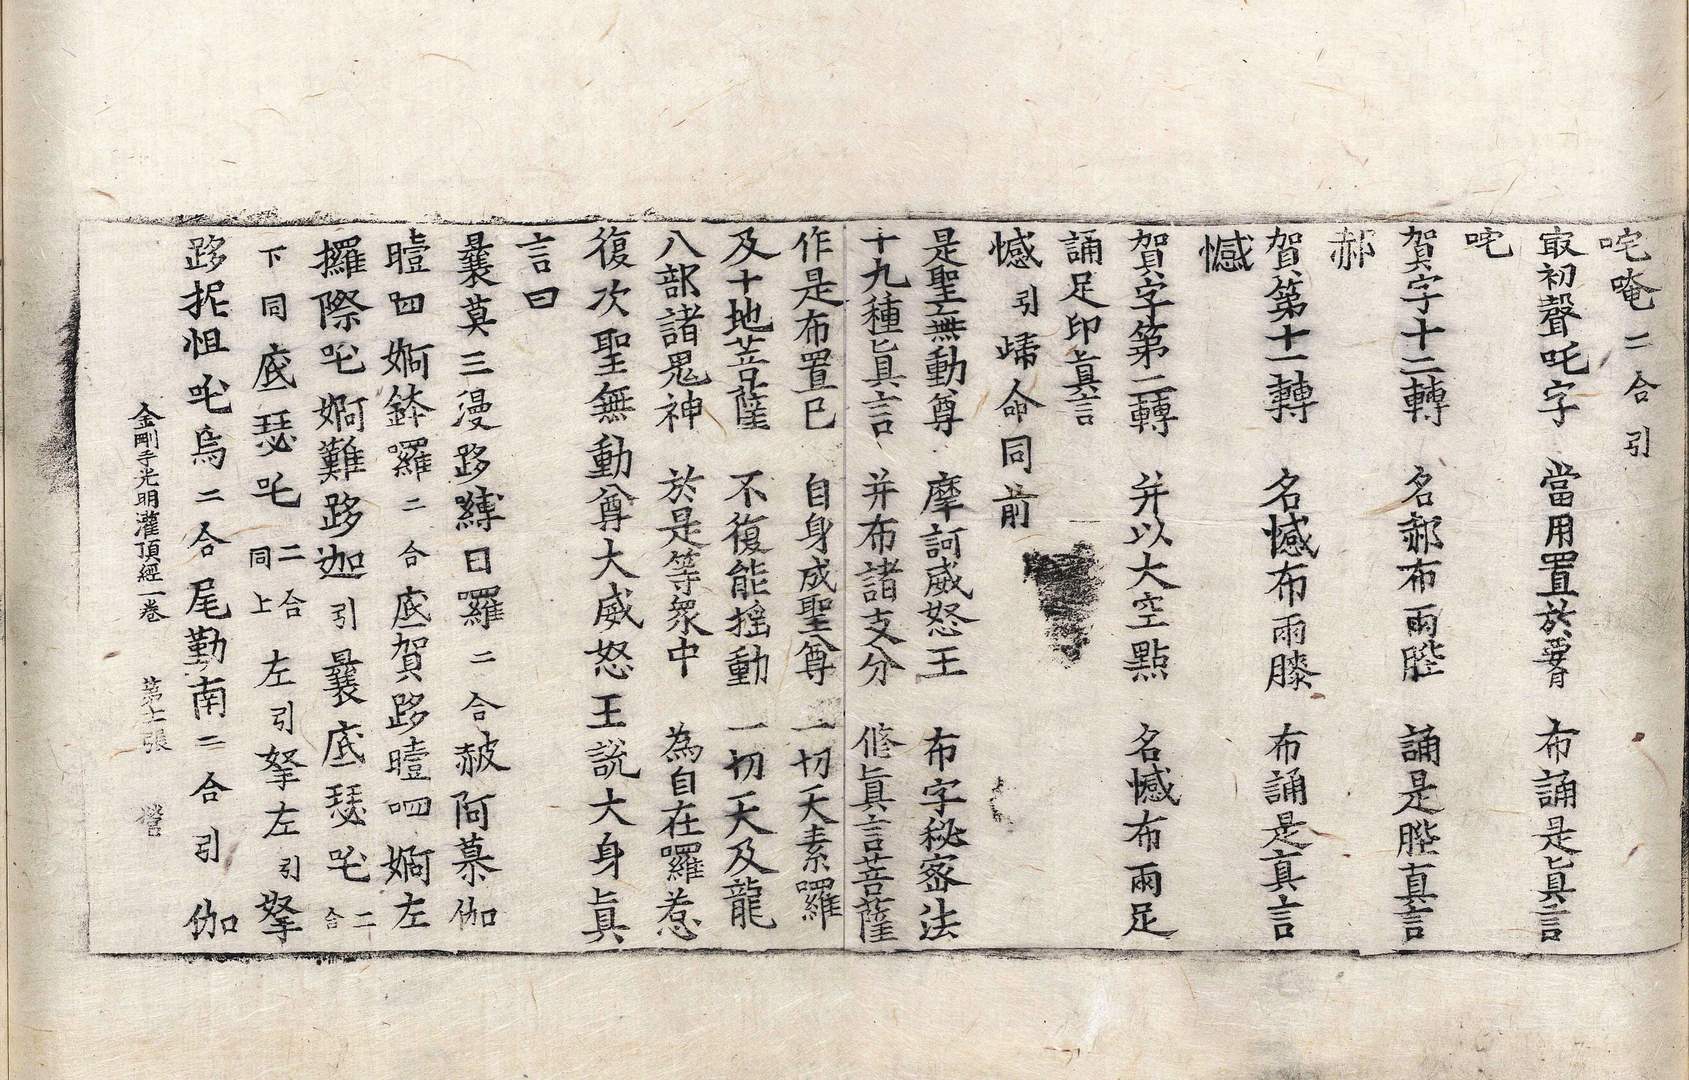 咤唵二合引
最初聲吒字　當用置於臀　布誦是眞言
咤
賀字十二轉　名郝布兩䏶　誦是䏶眞言
郝
賀第十一轉　名憾布兩膝　布誦是眞言
憾
賀字第二轉　并以大空點　名憾布兩足
誦足印眞言
憾引歸命同前
是聖無動尊　摩訶威怒王　布字秘密法
十九種眞言　并布諸支分　修眞言菩薩
作是布置已　自身成聖尊　一切天素囉
及十地菩薩　不復能搖動　一切天及龍
八部諸鬼神　於是等衆中　為自在囉惹
復次聖無動尊大威怒王説大身眞
言曰
曩莫三漫跢縛日囉二合赧阿慕伽
曀呬婀鉢囉二合底賀跢曀呬婀左
攞際吒婀難跢迦引曩底瑟吒二合
下同底瑟吒二合同上左引拏左引拏
跢抳怛吒烏二合尾勤南二合引伽
金剛手光明灌頂經一卷　第七張　營